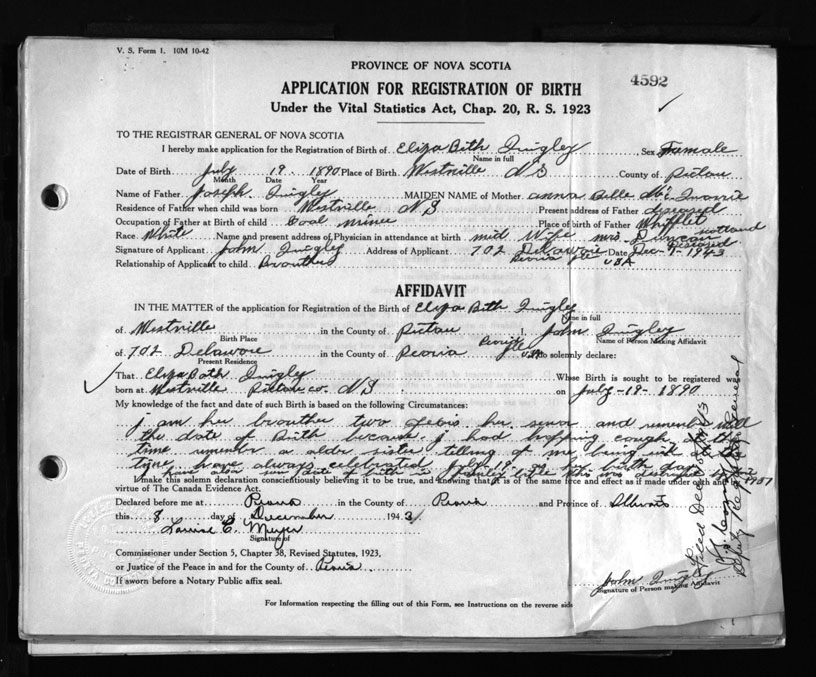 V. S. Form 1. 10M 10-42
PROVINCE OF NOVA SCOTIA
4592
APPLICATION FOR REGISTRATION OF BIRTH
Under the Vital Statistics Act, Chap. 20, R. S. 1923
TO THE REGISTRAR GENERAL OF NOVA SCOTIA
I hereby make application for the Registration of Birth of Eliza Bith Quigley Sex Famale
Name in full
Date of Birth July 19 1890 Place of Birth Westville N S County of Pictau
Month Date Year
Name of Father Joseph Quigley MAIDEN NAME of Mother anna Belle Mc
Residence of Father when child was born Westville N S Present address of Father
Occupation of Father at Birth of child Coal miner Place of Birth of Father Scotland
Race White Name and present address of Physician in attendance at birth mid Wife mrs Duncan
Signature of Applicant John Quigley Address of Applicant 702 Delaware Peoria USA Date Dec-9-1943
Relationship of Applicant to child Brouther
AFFIDAVIT
IN THE MATTER of the application for Registration of the Birth of Eliza Bith Quigley
Name in full
of Westville in the County of Pictau I, John Quigley
Birth Place Name of Person Making Affidavit
of 702 Delaware in the County of Peoria do solemnly declare:
Present Residence
That Eliza Bath Quigley Whose Birth is sought to be registered was
born at Westville Pictou co. N S on July-19-1890
My knowledge of the fact and date of such Birth is based on the following Circumstances:
I am her brouther two her senor and remember well
the date of Birth because I had hopping cough at the
time remember a older sister telling of me being ill at the
time have always celebrated July 19 as her birth day
I make this solemn declaration conscientiously believing it to be true, and knowing that it is of the same force and effect as if made under oath and
virtue of The Canada Evidence Act.
Declared before me at Peoria in the County of Peoria and Province of Illinois
this 8 day of December 1943
Louise C. Meyer
Signature of
Commissioner under Section 5, Chapter 38, Revised Statutes, 1923,
or Justice of the Peace in and for the County of Peoria
If sworn before a Notary Public affix seal.
John Quigley
Signature of Person making Affidavit
For Information respecting the filling out of this Form, see Instructions on the reverse side
Deputy Registrar General